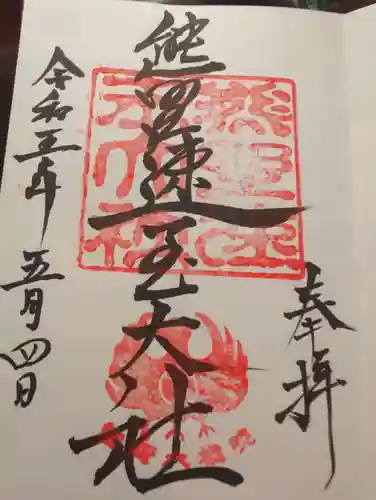 奉拝
熊野速玉大社
令和五年
五月四日